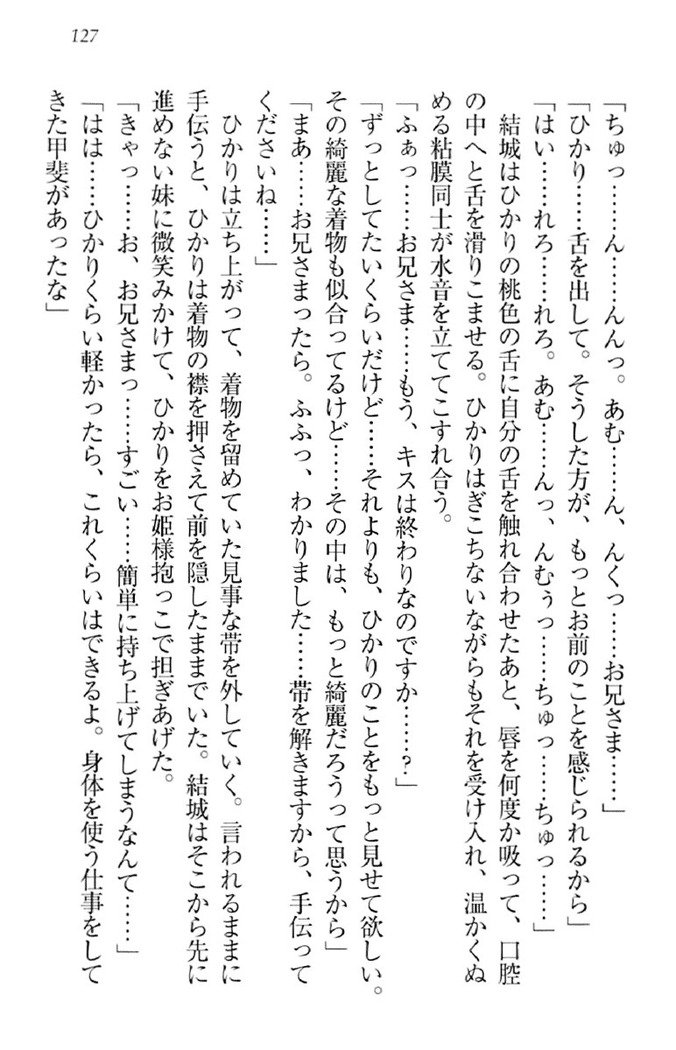 127
「ちゅっ……ん……んんっ。あむ……ん、んくっ……お兄さま……」
「ひかり……舌を出して。そうした方が、もっとお前のことを感じられるから」
「はい……れろ……れろ。あむ……んっ、んむぅっ……ちゅっ……ちゅっ……」
結城はひかりの桃色の舌に自分の舌を触れ合わせたあと、唇を何度か吸って、口腔
の中へと舌を滑りこませる。ひかりはぎこちないながらもそれを受け入れ、温かくぬ
める粘膜同士が水音を立ててこすれ合う。
「ふぁっ……お兄さま……もう、キスは終わりなのですか……?」
「ずっとしてたいくらいだけど……それよりも、ひかりのことをもっと見せて欲しい。
その綺麗な着物も似合ってるけど……その中は、もっと綺麗だろうって思うから」
「まあ……お兄さまったら。ふふっ、わかりました……帯を解きますから、手伝って
くださいね……」
ひかりは立ち上がって、着物を留めていた見事な帯を外していく。言われるままに
手伝うと、ひかりは着物の襟を押さえて前を隠したままでいた。結城はそこから先に
進めない妹に微笑みかけて、ひかりをお姫様抱っこで担ぎあげた。
「きゃっ……お、お兄さまっ……すごい……簡単に持ち上げてしまうなんて……」
「はは……ひかりくらい軽かったら、これくらいはできるよ。身体を使う仕事をして
きた甲斐があったな」